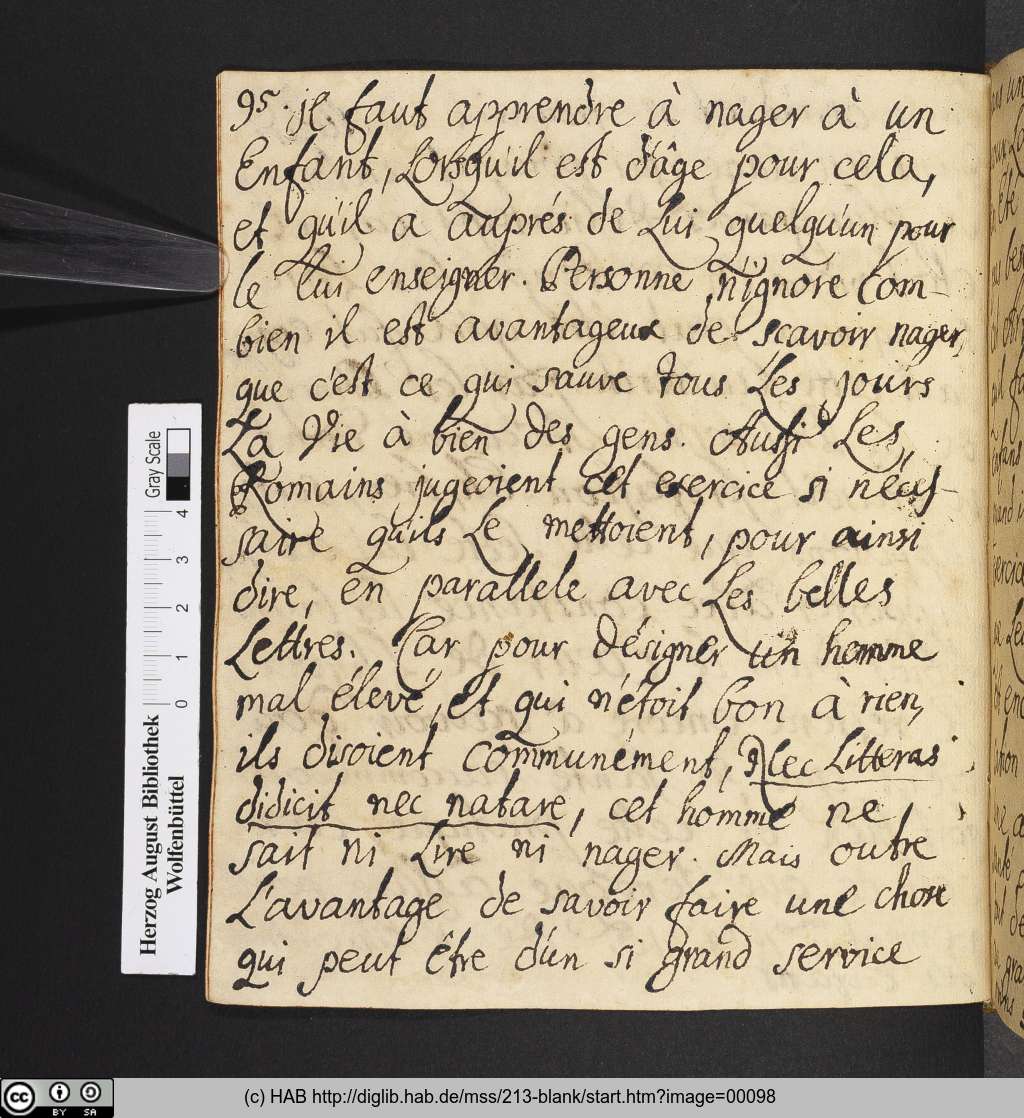 95. Jl faut apprendre à nager à un
Enfant, Lorsqu'il est d'âge pour cela,
et qu'il a auprés de Lui quelqu'un pour
le lui enseigner. Personne n'ignore Com-
bien il est avantageux de scavoir nager,
que c'est ce qui sauve tous Les jours
La Vie à bien des gens. Aussi Les
Romains jugeoient cet exercice si neces-
saire qu'ils Le mettoient, pour ainsi
dire, en parallele avec Les belles
Lettres. Car pour désigner un homme
mal élevé, et qui n'étoit bon à rien,
ils disoient communément, Nec Litteras
didicit nec natare, cet homme ne
sait ni Lire ni nager. Mais outre
L'avantage de savoir faire une chose
qui peut être d'un si grand service
Herzog August Bibliothek
Wolfenbüttel
Gray Scale
0 1 2 3 4
CC BY SA
(c) HAB http://diglib.hab.de/mss/213-blank/start.htm?image=00098